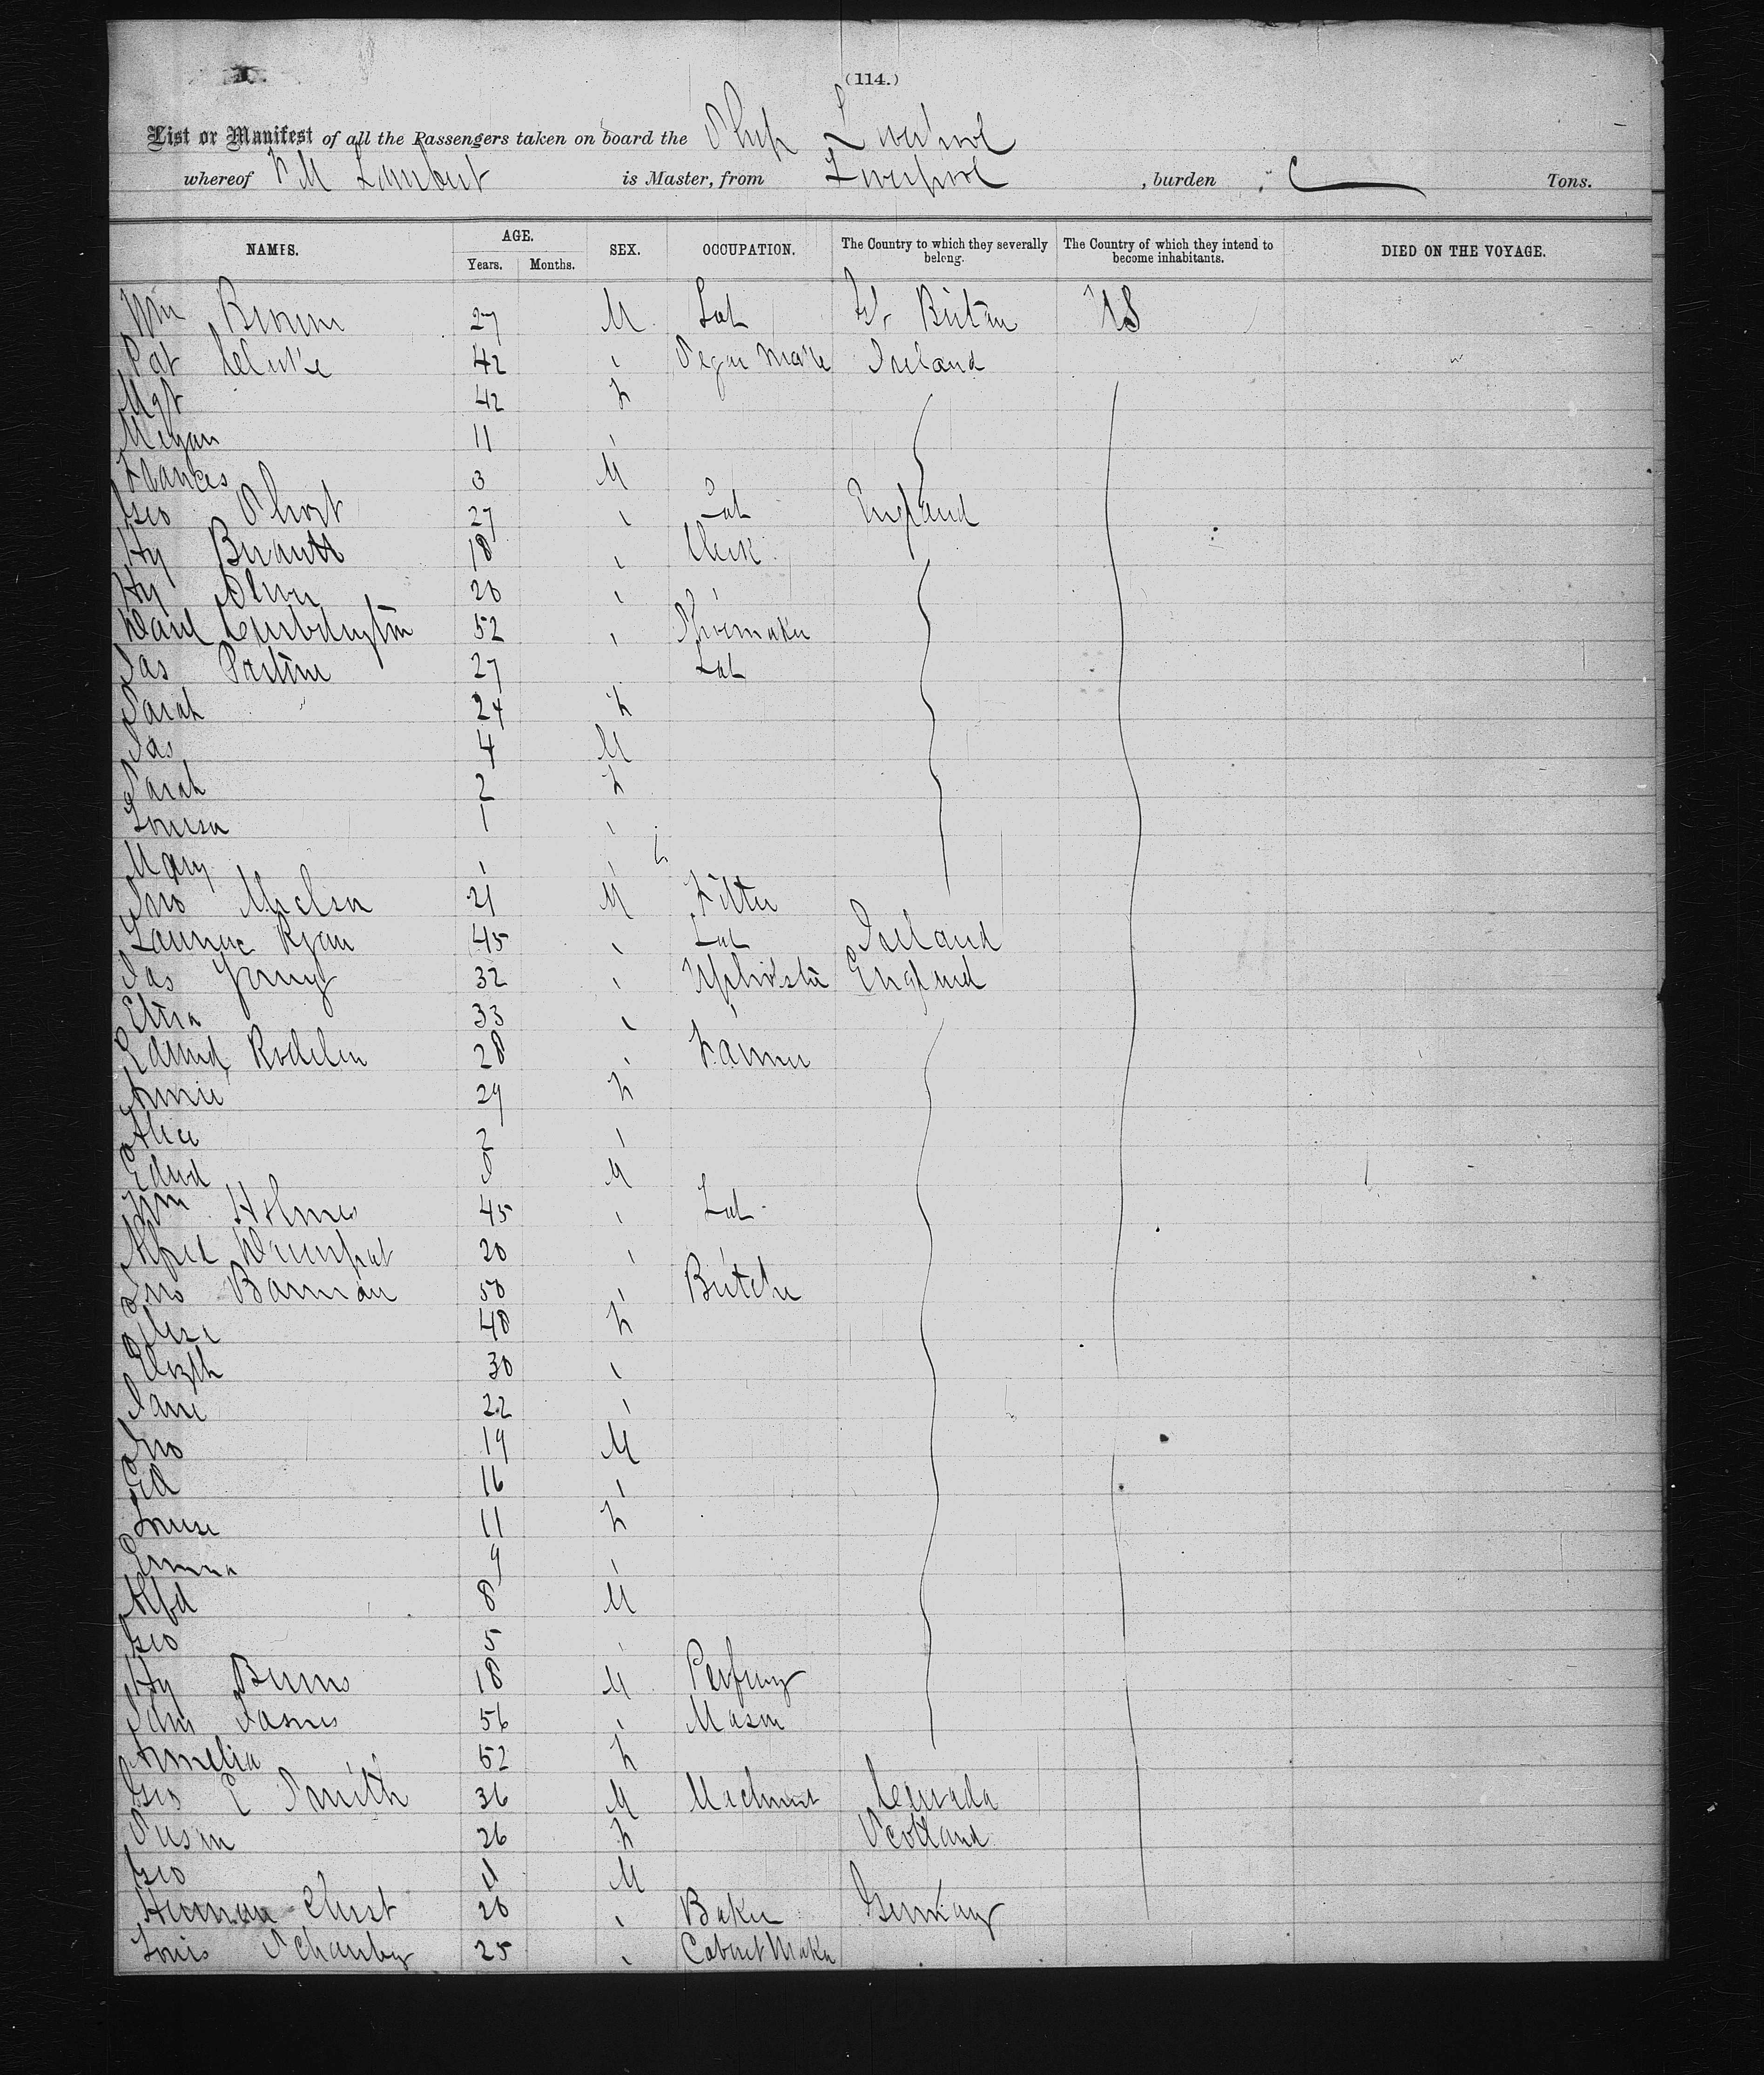 (114.)
List or Manifest of all the Passengers taken on board the Ship Liverpool
whereof Lambert is Master, from Liverpool, burden Tons.
NAMES. AGE. SEX. OCCUPATION. The Country to which they severally belong. The Country of which they intend to become inhabitants. DIED ON THE VOYAGE.
Years. Months.
Wm Brown 27 M Lab Gr Britain US
Pat Clarke 42 Segar Make Ireland
Mgt 42 F
11
Frances 3 M
Geo Short 27 Lab England
Hy 18 Clerk
Hy Oliver 20
52 Shoemaker
Jas 27 Lab
Sarah 24 F
Jas 4 M
Sarah 2 F
Louisa 1
Mary 1
Jno 21 M Fitter
Ryan 45 Lab Ireland
Jas Young 32 Upholster England
33
Edmd 28 Farmer
Annie 29 F
Alice 2
Edwd M
Wm Holmes 45 Lab
Alfred 20
Jno Barman 50 Butcher
48 F
Elizth 30
Jane 22
Jno 19 M
Ed 16
Louise 11 F
Emma 9
Alfd 8 M
Geo 5
Hy Burns 18 M
Sam James 56 Mason
Amelia 52 F
Geo E Smith 36 M Machinist Canada
Susan 26 F Scotland
Geo M
Herman 26 Baker Germany
Louis 25 Cabinet Maker